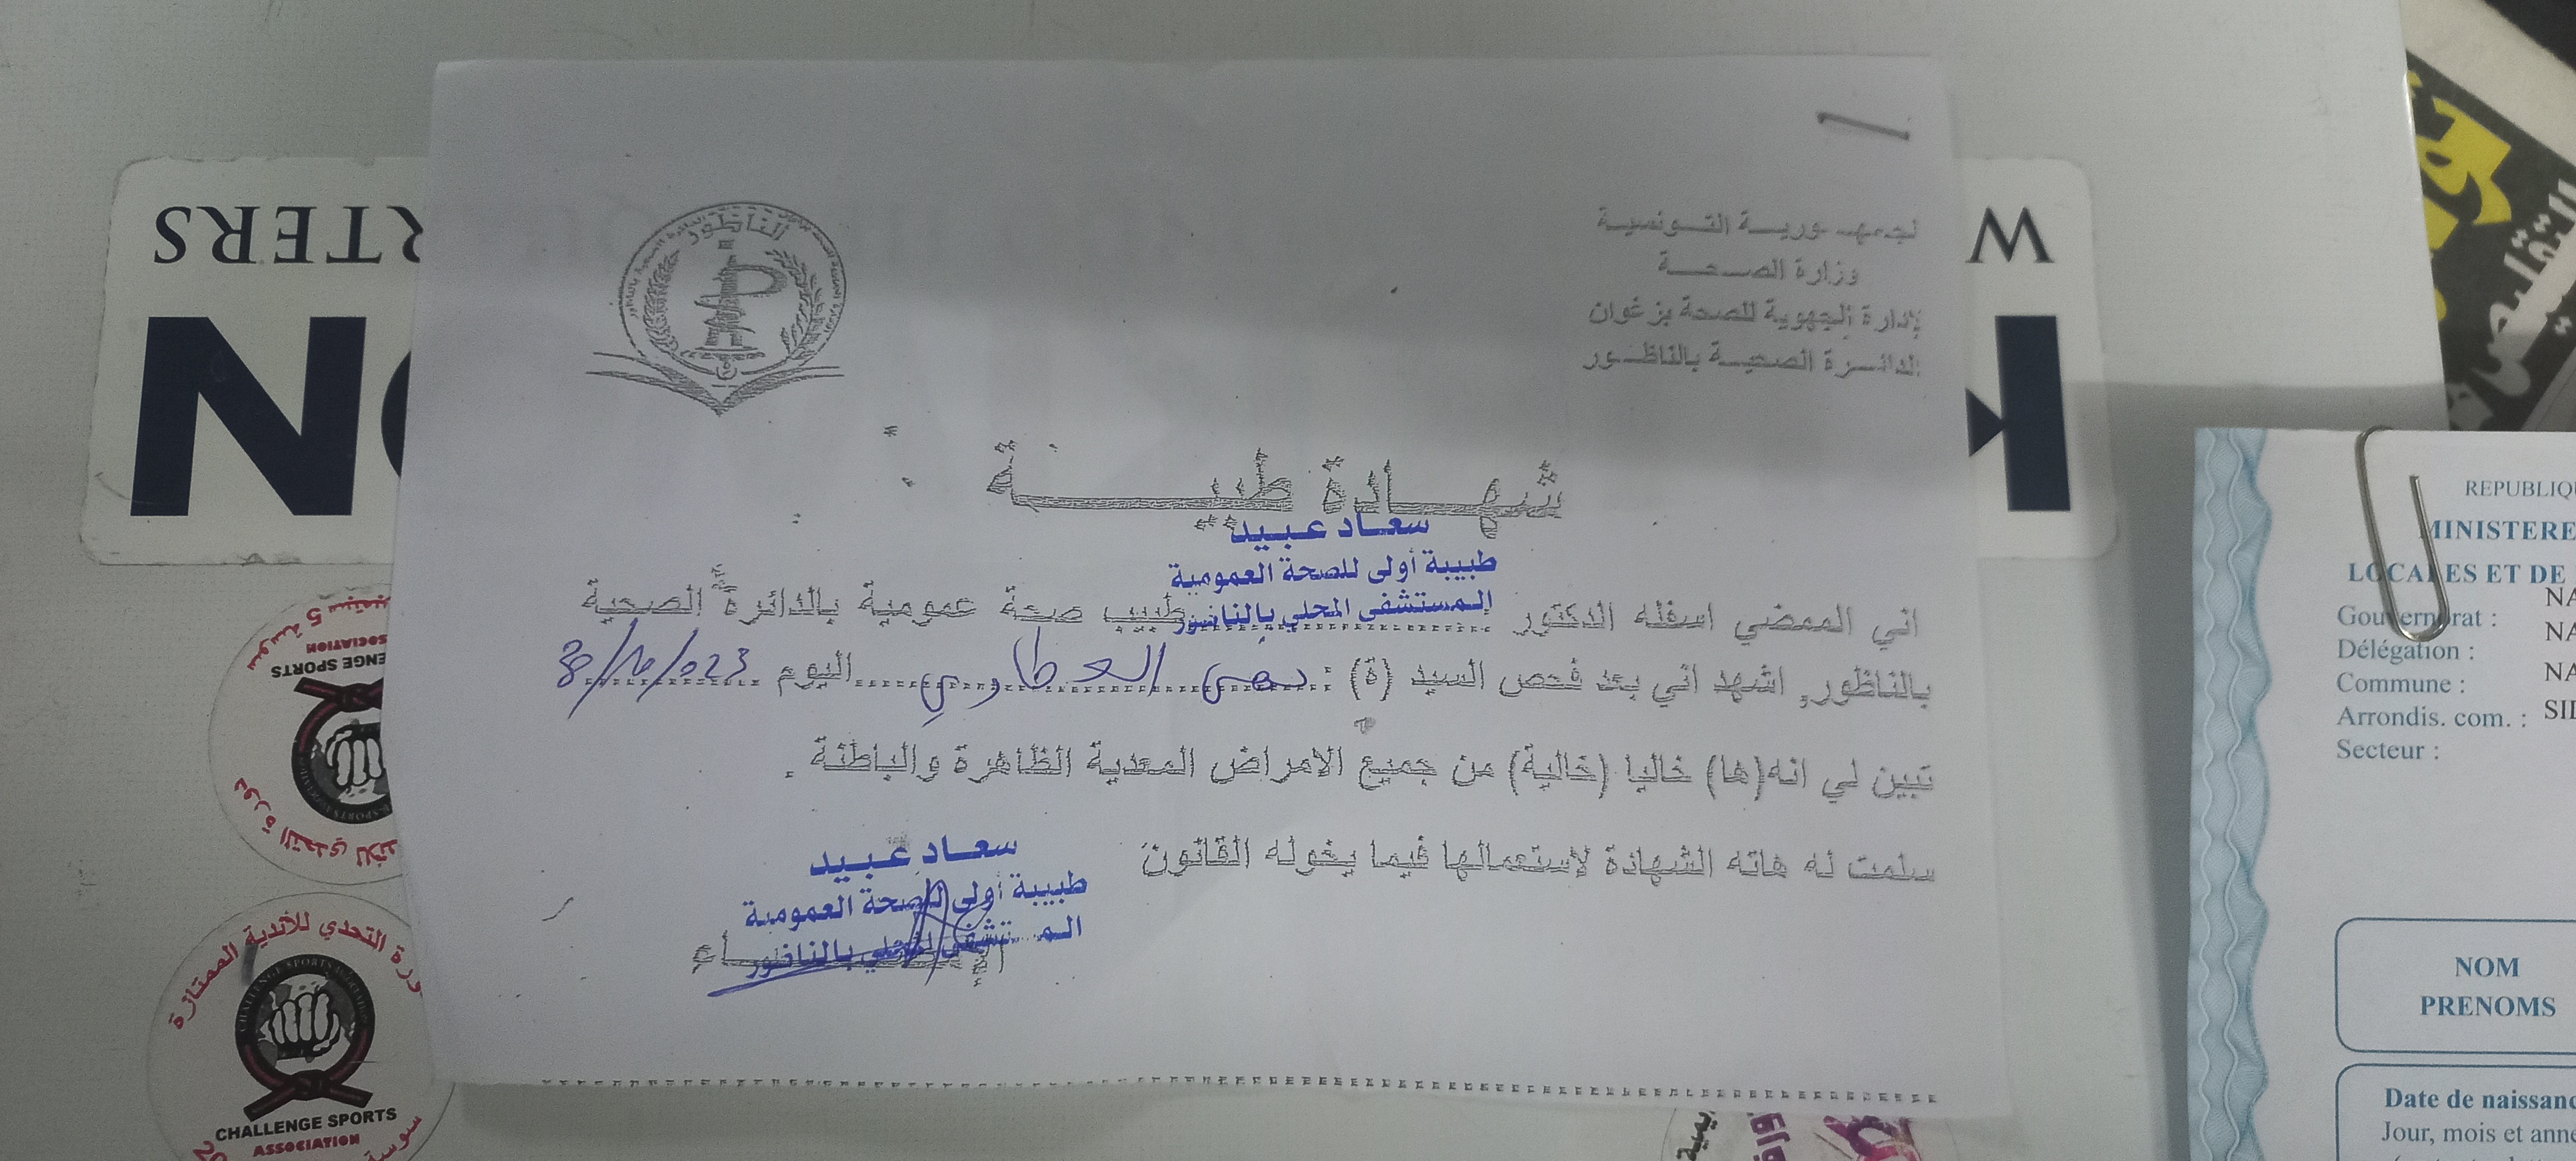 الجمهورية التونسية
وزارة الصحة
الإدارة الجهوية للصحة بزغوان
الدائرة الصحية بالناظور
الناظور
شهادة طبية
سعاد عبيد
طبيبة أولى للصحة العمومية
المستشفى المحلي بالناظور
اني الممضي اسفله الدكتور طبيب صحة عمومية بالدائرة الصحية
بالناظور, اشهد اني بعد فحص السيد (ة) : العطاوي اليوم 30/10/023
تبين لي انه(ها) خاليا (خالية) من جميع الامراض المعدية الظاهرة والباطنة .
سلمت له هاته الشهادة لاستعمالها فيما يخوله القانون
سعاد عبيد
طبيبة أولى للصحة العمومية
المستشفى المحلي بالناظور
الإمضاء
RTERS
NO
W
K
دورة التحدي للأندية الممتازة
CHALLENGE SPORTS
ASSOCIATION
REPUBLIQU
MINISTERE
LOCALES ET DE
Gouvernorat : NA
Délégation : NA
Commune : NA
Arrondis. com. : SII
Secteur :
NOM
PRENOMS
Date de naissanc
Jour, mois et anné